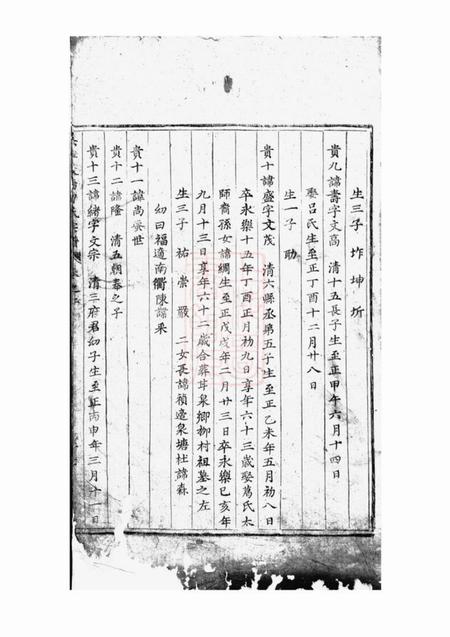 生三子 坤 圻
貴九諱壽字文高 清十五長子生至正甲午六月十四日
娶呂氏生至正丁酉十二月廿八日
生一子 助
貴十諱盛字文茂 清六縣丞第五子生至正乙未年五月初八日
卒永樂十五年丁酉正月初九日享年六十三歲娶葛氏太
師裔孫女諱綢生至正戊戌年二月廿三日卒永樂己亥年
九月十三日享年六十二歲合葬 泉鄉柳村祖墓之左
生三子 祐 崇 嚴 二女長諱禎適泉塘杜諱森
幼曰福適南衢陳諱采
貴十一諱尚 世
貴十二諱隆 清五朝奉之子
貴十三諱緒字文宗 清三府君幼子生至正丙申年三月廿一日